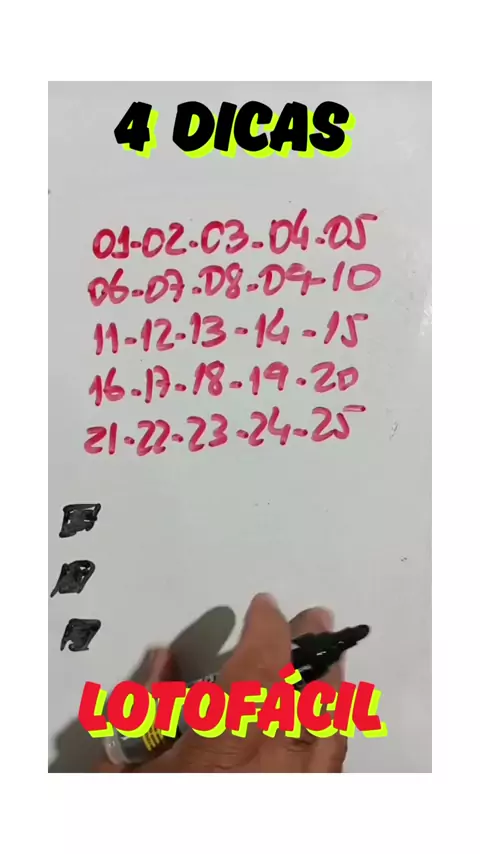 4 DICAS
01-02-03-04-05
06-07-08-09-10
11-12-13-14-15
16-17-18-19-20
21-22-23-24-25
LOTOFÁCIL